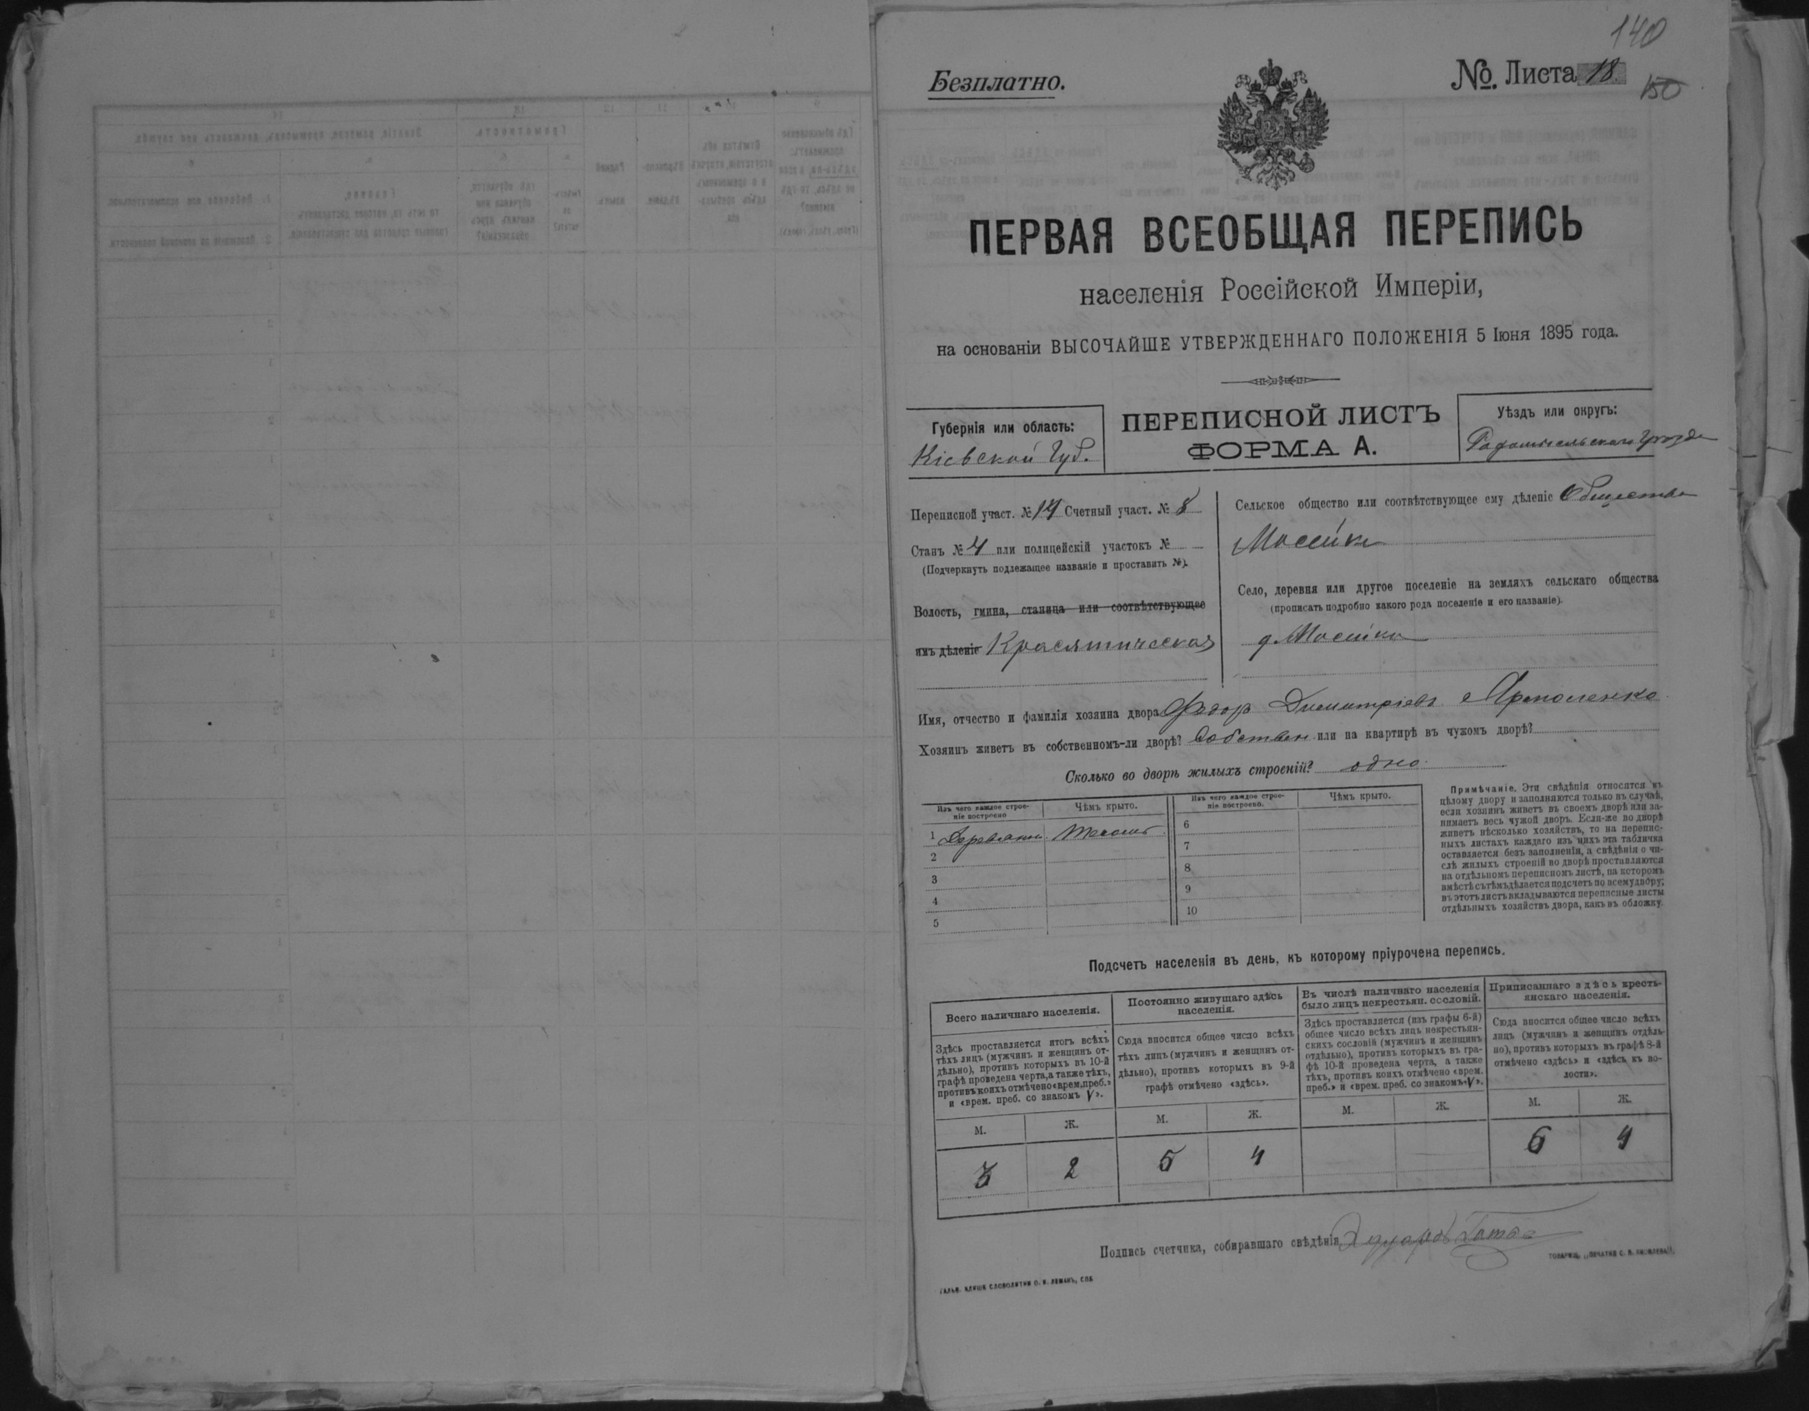 140
Безплатно.
№. Листа 18
150
ПЕРВАЯ ВСЕОБЩАЯ ПЕРЕПИСЬ
населенія Россійской Имперіи,
на основаніи ВЫСОЧАЙШЕ УТВЕРЖДЕННАГО ПОЛОЖЕНІЯ 5 Іюня 1895 года.
Губернія или область:
Кіевской Губ.
ПЕРЕПИСНОЙ ЛИСТЪ
ФОРМА А.
Уѣздъ или округъ:
Радомысльскаго Уѣзда
Переписной участ. № 14 Счетный участ. № 8
Станъ № 4 или полицейскій участокъ №
(Подчеркнуть подлежащее названіе и проставить №).
Волость, гмина, станица или соотвѣтствующее
имъ дѣленіе Красятичская
Сельское общество или соотвѣтствующее ему дѣленіе Общество
Мосейки
Село, деревня или другое поселеніе на земляхъ сельскаго общества
(прописать подробно какого рода поселеніе и его названіе).
д. Мосейки
Имя, отчество и фамилія хозяина двора Ѳедор Димитріевъ Ярмоленко
Хозяинъ живетъ въ собственномъ-ли дворѣ? Собствен или на квартирѣ въ чужомъ дворѣ?
Сколько во дворѣ жилыхъ строеній? одно.
Изъ чего каждое строе-
ніе построено
Чѣмъ крыто.
Изъ чего каждое строе-
ніе построено.
Чѣмъ крыто.
1 Деревянн.
2
3
4
5
6
7
8
9
10
Примѣчаніе. Эти свѣдѣнія относятся къ
цѣлому двору и заполняются только въ случаѣ,
если хозяинъ живетъ въ своемъ дворѣ или за-
нимаетъ весь чужой дворъ. Если-же во дворѣ
живетъ нѣсколько хозяйствъ, то на перепис-
ныхъ листахъ каждаго изъ нихъ эта табличка
оставляется безъ заполненія, а свѣдѣнія о чи-
слѣ жилыхъ строеній во дворѣ проставляются
на отдѣльномъ переписномъ листѣ, на которомъ
вмѣстѣ съ тѣмъ дѣлается подсчетъ по всему двору;
въ этотъ листъ вкладываются переписные листы
отдѣльныхъ хозяйствъ двора, какъ въ обложку.
Подсчетъ населенія въ день, къ которому пріурочена перепись.
Всего наличнаго населенія.
Здѣсь проставляется итогъ всѣхъ
тѣхъ лицъ (мужчинъ и женщинъ от-
дѣльно), противъ которыхъ въ 10-й
графѣ проведена черта, а также тѣхъ,
противъ коихъ отмѣчено «врем. преб.»
и «врем. преб. со знакомъ V».
М. Ж.
3 2
Постоянно живущаго здѣсь
населенія.
Сюда вносится общее число всѣхъ
тѣхъ лицъ (мужчинъ и женщинъ от-
дѣльно), противъ которыхъ въ 9-й
графѣ отмѣчено «здѣсь».
М. Ж.
5 4
Въ числѣ наличнаго населенія
было лицъ некрестьян. сословій.
Здѣсь проставляется (изъ графы 6-й)
общее число всѣхъ лицъ некрестьян-
скихъ сословій (мужчинъ и женщинъ
отдѣльно), противъ которыхъ въ гра-
фѣ 10-й проведена черта, а также
тѣхъ, противъ коихъ отмѣчено «врем.
преб.» и «врем. преб. со знакомъ «V».
М. Ж.
Приписаннаго здѣсь кресть-
янскаго населенія.
Сюда вносится общее число всѣхъ
лицъ (мужчинъ и женщинъ отдѣль-
но), противъ которыхъ въ графѣ 8-й
отмѣчено «здѣсь» и «здѣсь въ во-
лости».
М. Ж.
4
Подпись счетчика, собиравшаго свѣдѣнія
ГАЛЬВ. КЛИШЕ СЛОВОЛИТНИ О. И. ЛЕМАНЪ, СПБ
ТОВАРИЩ. „ПЕЧАТНЯ С. П. ЯКОВЛЕВА".